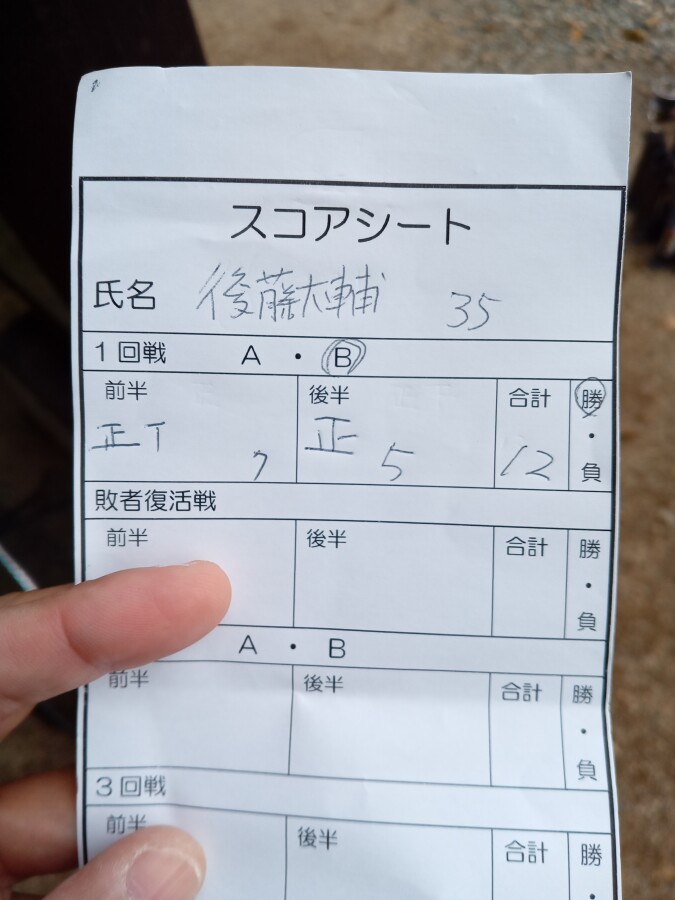 スコアシート
氏名 後藤大輔 35
1回戦 A・B
前半 後半 合計 勝・負
正丅 7 正 5 12
敗者復活戦
前半 後半 合計 勝・負
A・B
前半 後半 合計 勝・負
3回戦
前半 後半 合計 勝・